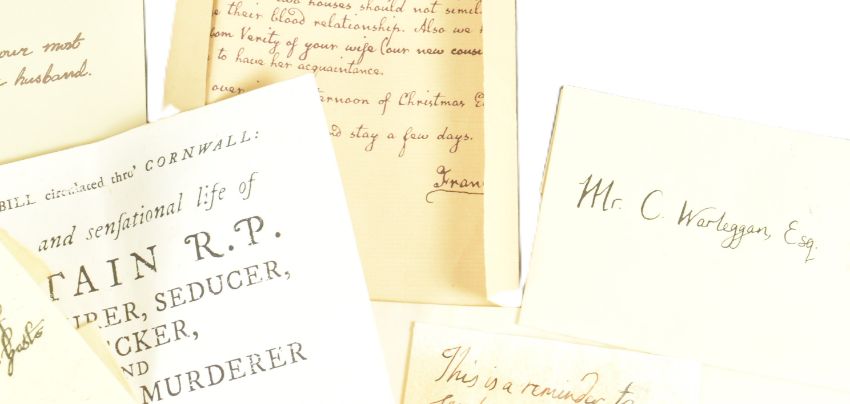 our most
husband.
two houses should not simil
e their blood relationship. Also we
om Verity of your wife (our new cousi
to have her acquaintance.
over ternoon of Christmas E
nd stay a few days.
Fran
BILL circulated thro' CORNWALL:
and senſational life of
TAIN R.P.
URER, SEDUCER,
CKER,
ND
MURDERER
Mr. C. Warleggan, Esq.
This is a reminder to